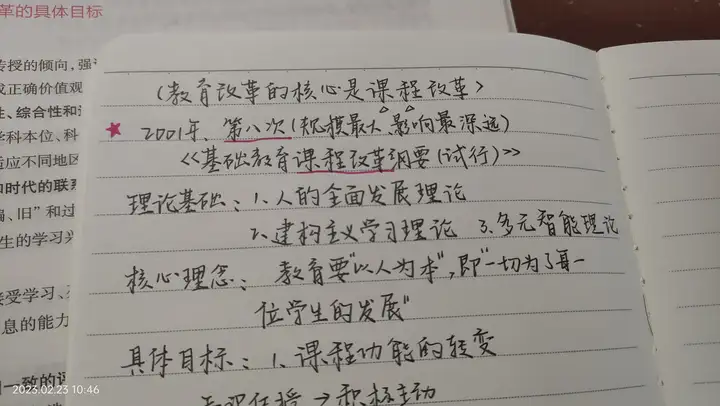 革的具体目标
传授的倾向,强
成正确价值观
性、综合性和
学科本位、科
适应不同地区
和时代的联系
、旧”和过
生的学习兴
接受学习、
息的能力
一致的
(教育改革的核心是课程改革>
★ 2001年、第八次(规模最大、影响最深远)
<<基础教育课程改革纲要(试行)>>
理论基础:1.人的全面发展理论
2.建构主义学习理论 3.多元智能理论
核心理念:教育要"以人为本",即"一切为了每一
位学生的发展"
具体目标:1.课程功能的转变
知识传授→积极主动
2023.02.23 10:46